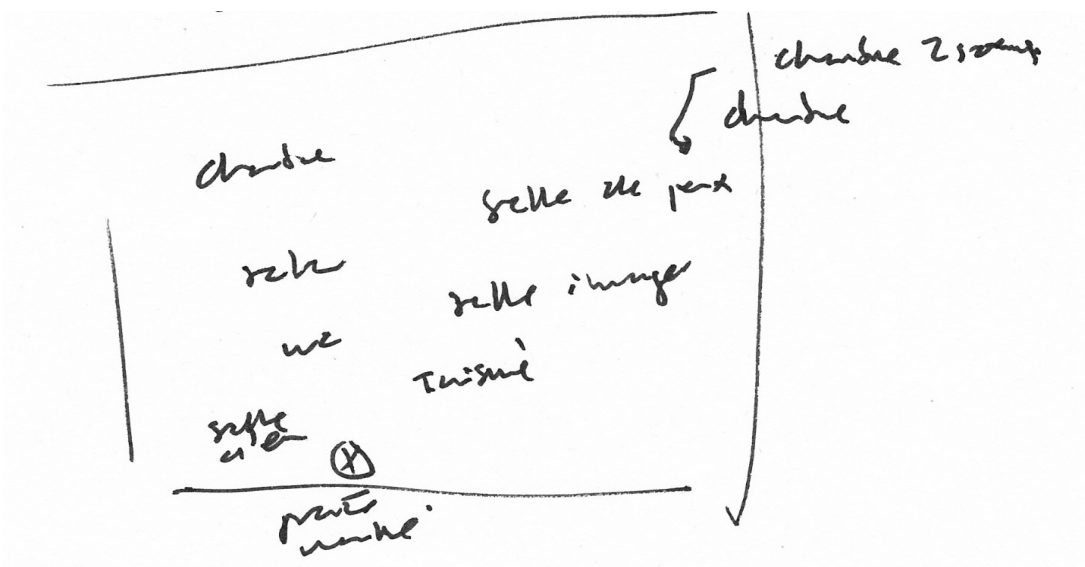 chambre 2
chambre
chambre
salle de jeux
salon
salle à manger
wc
cuisine
salle
d'eau
porte